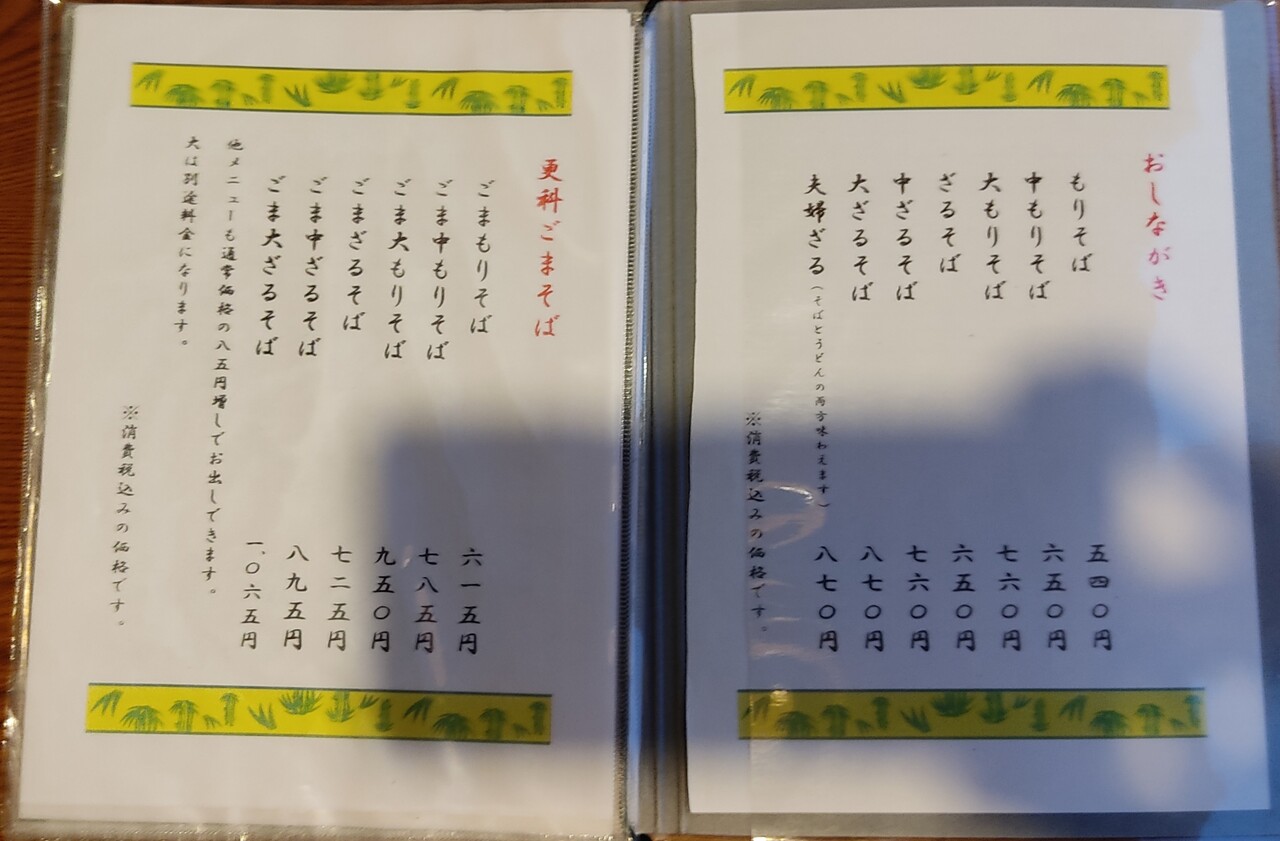 おしながき
もりそば 五四〇円
中もりそば 六五〇円
大もりそば 七六〇円
ざるそば 六五〇円
中ざるそば 七六〇円
大ざるそば 八七〇円
夫婦ざる（そばとうどんの両方味わえます） 八七〇円
※消費税込みの価格です。
更科ごまそば
ごまもりそば 六一五円
ごま中もりそば 七八五円
ごま大もりそば 九五〇円
ごまざるそば 七二五円
ごま中ざるそば 八九五円
ごま大ざるそば 一、〇六五円
他メニューも通常価格の八五円増しでお出しできます。
大は別途料金になります。
※消費税込みの価格です。